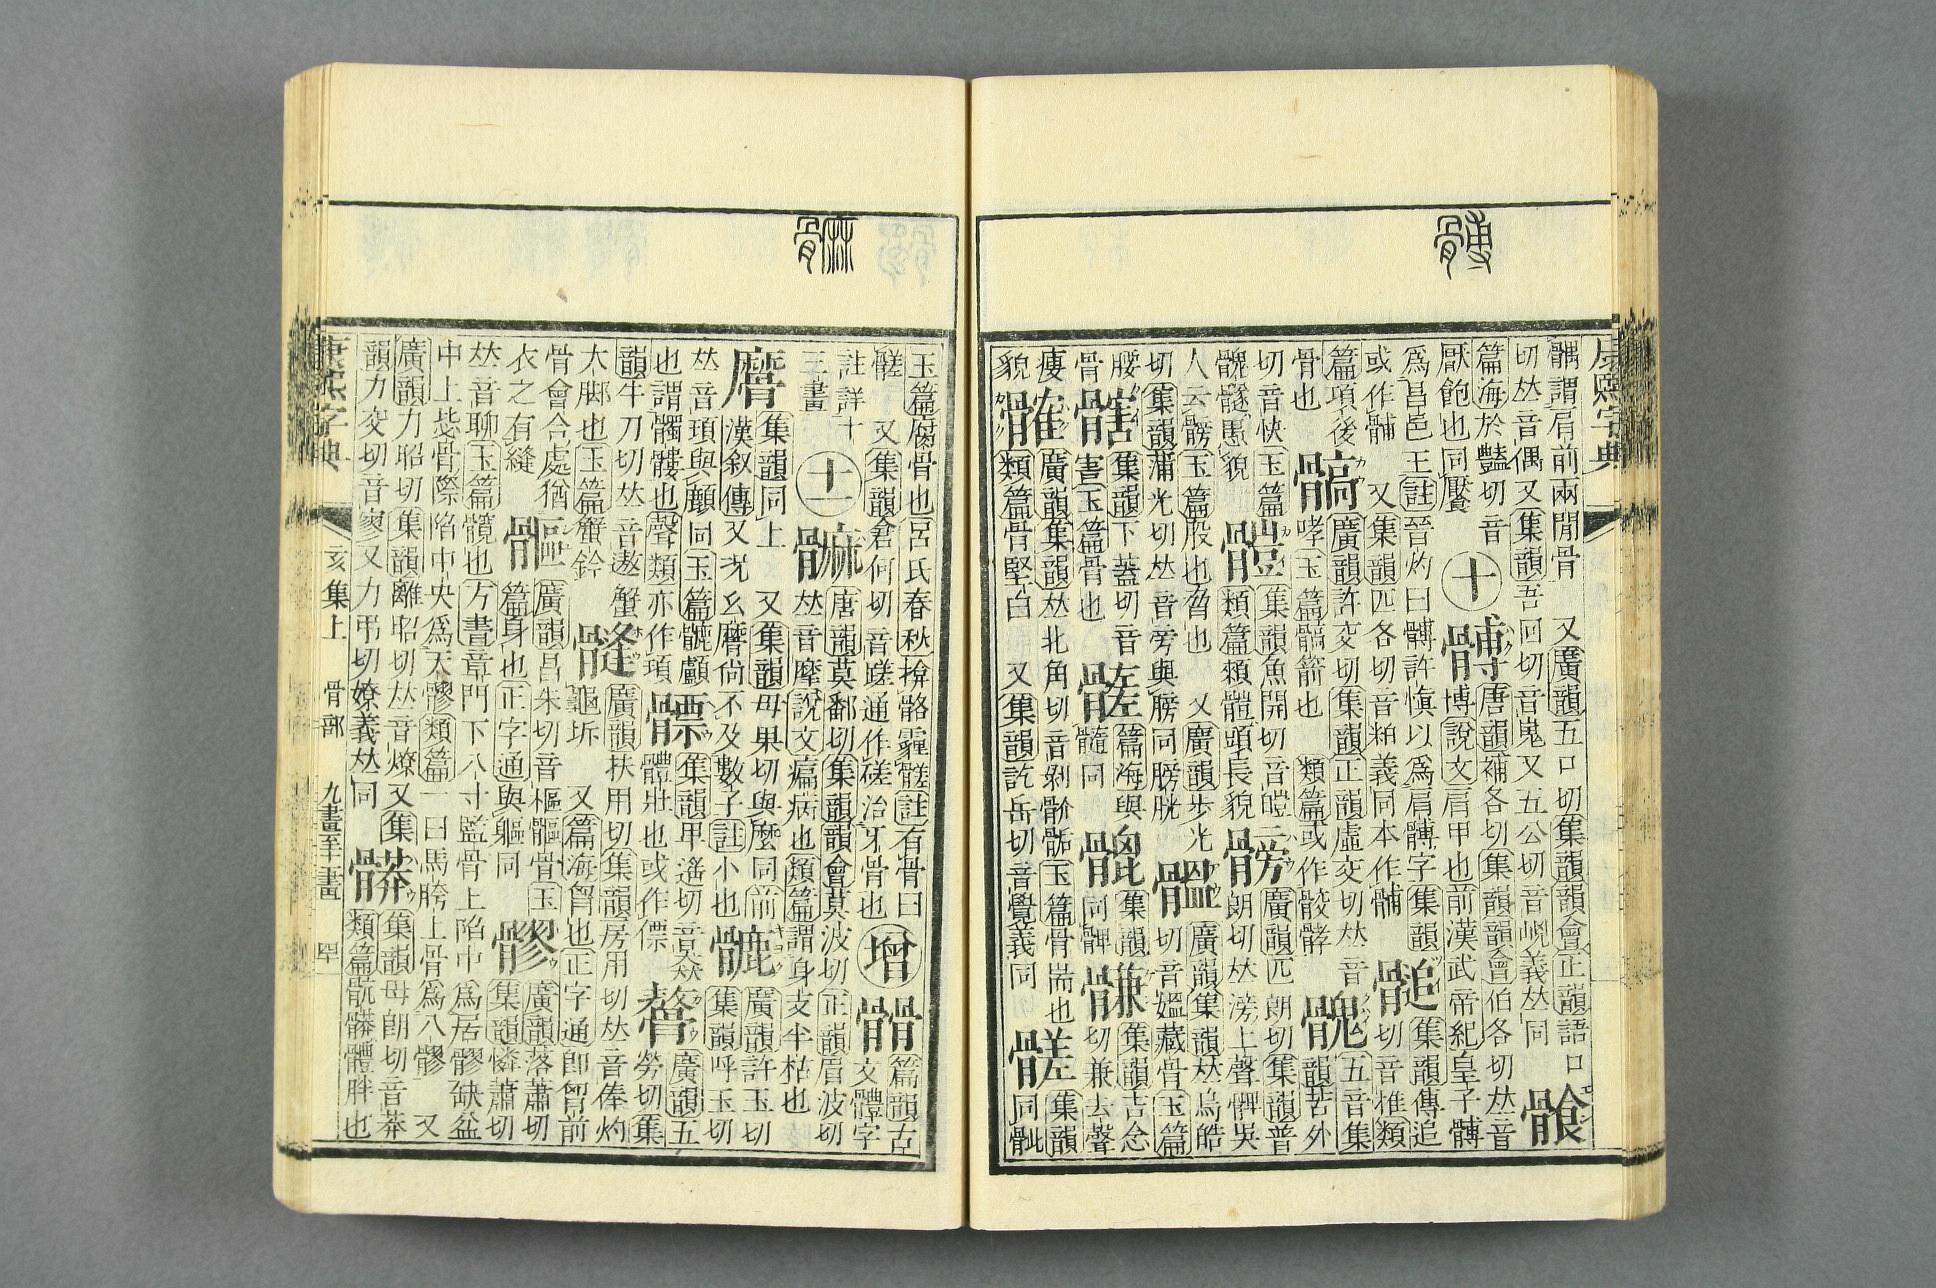 康熙字典
髆
髃謂肩前兩閒骨 又廣韻五口切集韻韻會正韻語口
切𠀤音偶又集韻吾回切音嵬又五公切音㟴義𠀤同
篇海於豔切音
厭飽也同饜
十
髆
唐韻補各切集韻韻會伯各切𠀤音
博說文肩甲也前漢武帝紀皇子髆
爲昌邑王註晉灼曰髆許愼以爲肩髆字集韻
或作 又集韻匹各切音粕義同本作
集韻傳追
切音椎類
篇項後
骨也
髇
廣韻許交切集韻正韻虛交切𠀤音
哮玉篇髇箭也 類篇或作骹
五音集
韻苦外
切音快玉篇
愚貌
集韻魚開切音皚
類篇 頭長貌
髈
廣韻匹朗切集韻普
朗切𠀤滂上聲髀吳
人云髈玉篇股也脅也 又廣韻步光
切集韻蒲光切𠀤音旁與膀同膀胱
廣韻集韻𠀤烏皓
切音媼藏骨玉篇
腰
骨
集韻下蓋切音
害玉篇骨也
篇海與
髓同
集韻
同髀
集韻吉念
切兼去聲
瘦
貌
廣韻集韻𠀤北角切音剝 玉篇骨耑也
類篇骨堅白 又集韻訖岳切音覺義同
髊
集韻
同骴
玉篇腐骨也呂氏春秋揜骼霾髊註有骨曰
髊又集韻倉何切音蹉通作磋治牙骨也
增
篇韻古
文體字
註詳十
三畫
十一
髍
唐韻莫鄱切集韻韻會莫波切正韻眉波切
𠀤音摩說文瘺病也類篇謂身支半枯也
集韻同上 又集韻母果切與麼同前
漢敘傳又況幺 尙不及數子註小也
廣韻許玉切
集韻呼玉切
𠀤音頊與 同玉篇 顱
也謂髑髏也聲類亦作頊
集韻甲遙切音猋
體壯也或作僄
廣韻五
勞切集
韻牛刀切𠀤音遨蟹
大脚也玉篇蟹鈐
廣韻扶用切集韻房用切𠀤音俸灼
龜坼 又篇海 也正字通卽 前
骨會合處猶
衣之有縫
廣韻昌朱切音樞 骨玉
篇身也正字通與軀同
髎
廣韻落蕭切
集韻憐蕭切
𠀤音聊玉篇髖也方書章門下八寸監骨上陷中爲居髎缺盆
中上毖骨際陷中央爲天髎類篇一曰馬胯上骨爲八髎 又
廣韻力昭切集韻離昭切𠀤音燎又集
韻力交切音寥又力弔切嫽義𠀤同
集韻母朗切音莽
類篇骯 體胖也
康熙字典
亥集上 骨部